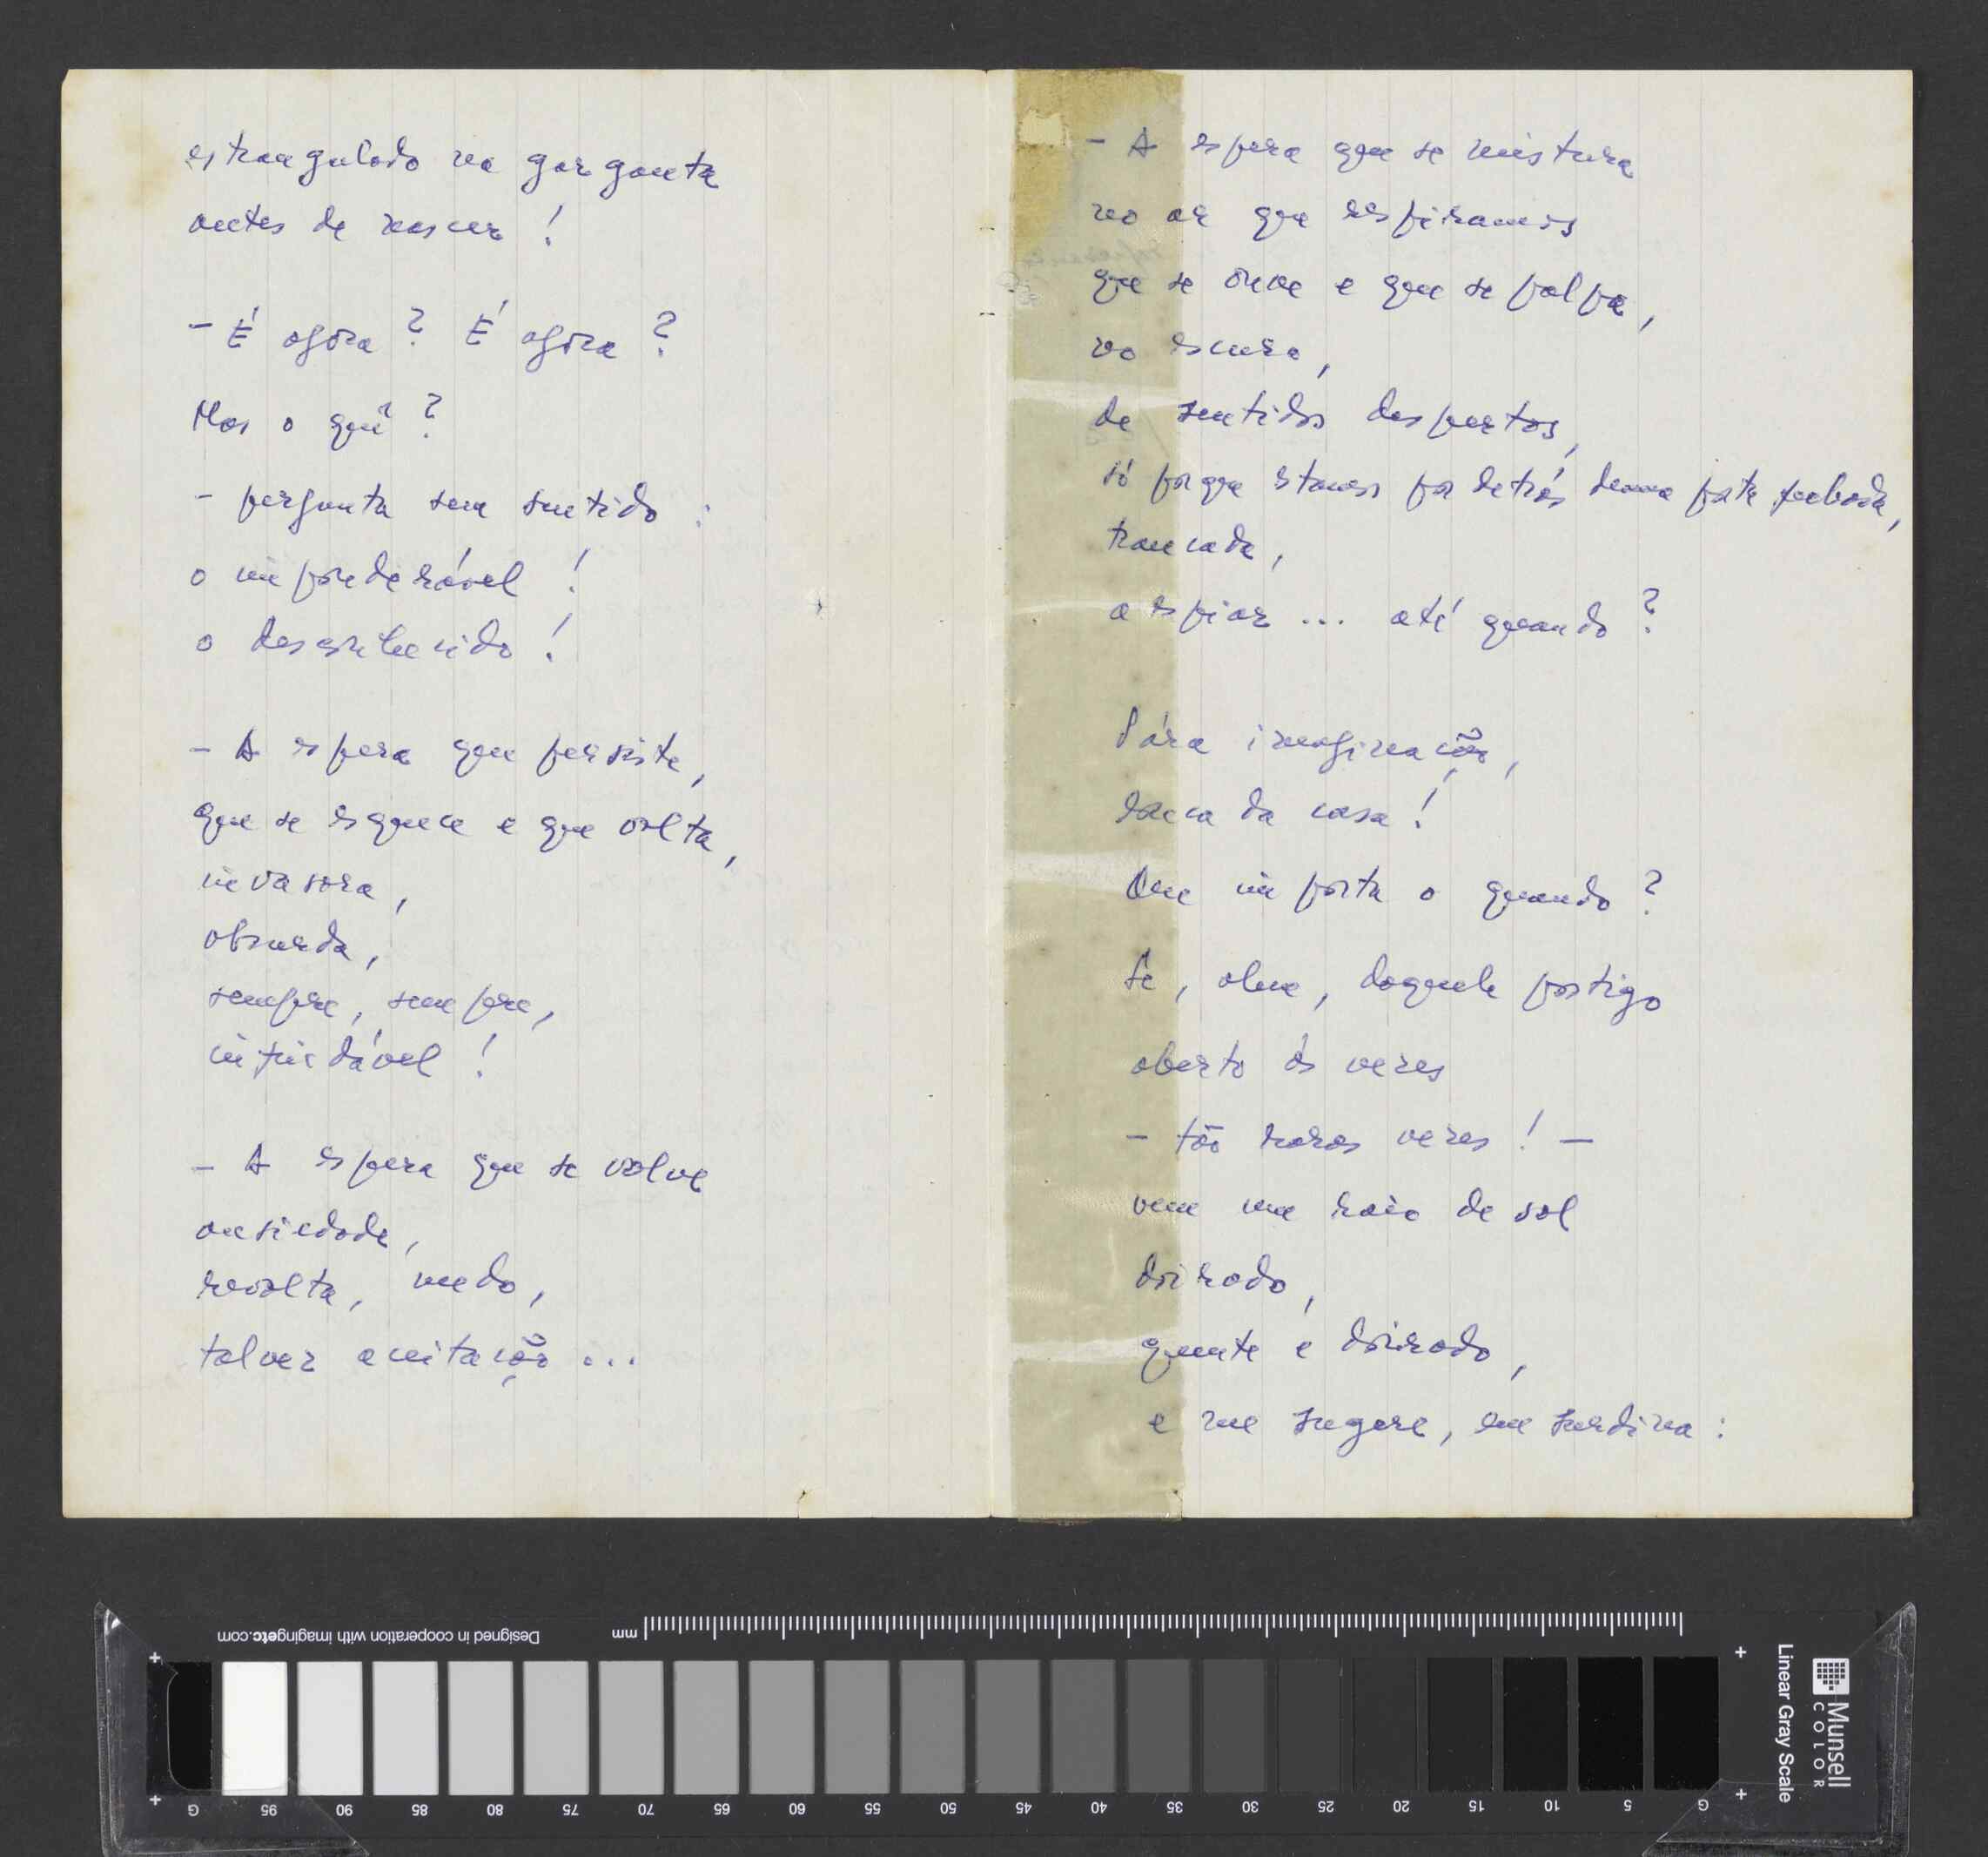 estrangulado na garganta
antes de nascer !
- É agora ? É agora ?
Mas o quê ?
- pergunta sem sentido :
o imponderável !
o desconhecido !
- A espera que persiste,
que se esquece e que volta,
invasora,
absurda,
sempre, sempre,
infindável !
- A espera que se volve
ansiedade,
revolta, medo,
talvez aceitação ...
- A espera que se mistura
no ar que respiramos
que se ouve e que se palpa,
no escuro,
de sentidos despertos,
só porque estamos por detrás duma porta fechada,
trancada,
a espiar ... até quando ?
Pára imaginação,
louca da casa !
Que importa o quando ?
Se, olha, daquele postigo
aberto às vezes
- tão raras vezes ! -
vem um raio de sol
doirado,
quente e doirado,
e me sugere, em surdina :
Designed in cooperation with imagingetc.com
mm
G 95 90 85 80 75 70 65 60 55 50 45 40 35 30 25 20 15 10 5 G
Linear Gray Scale
Munsell
COLOR